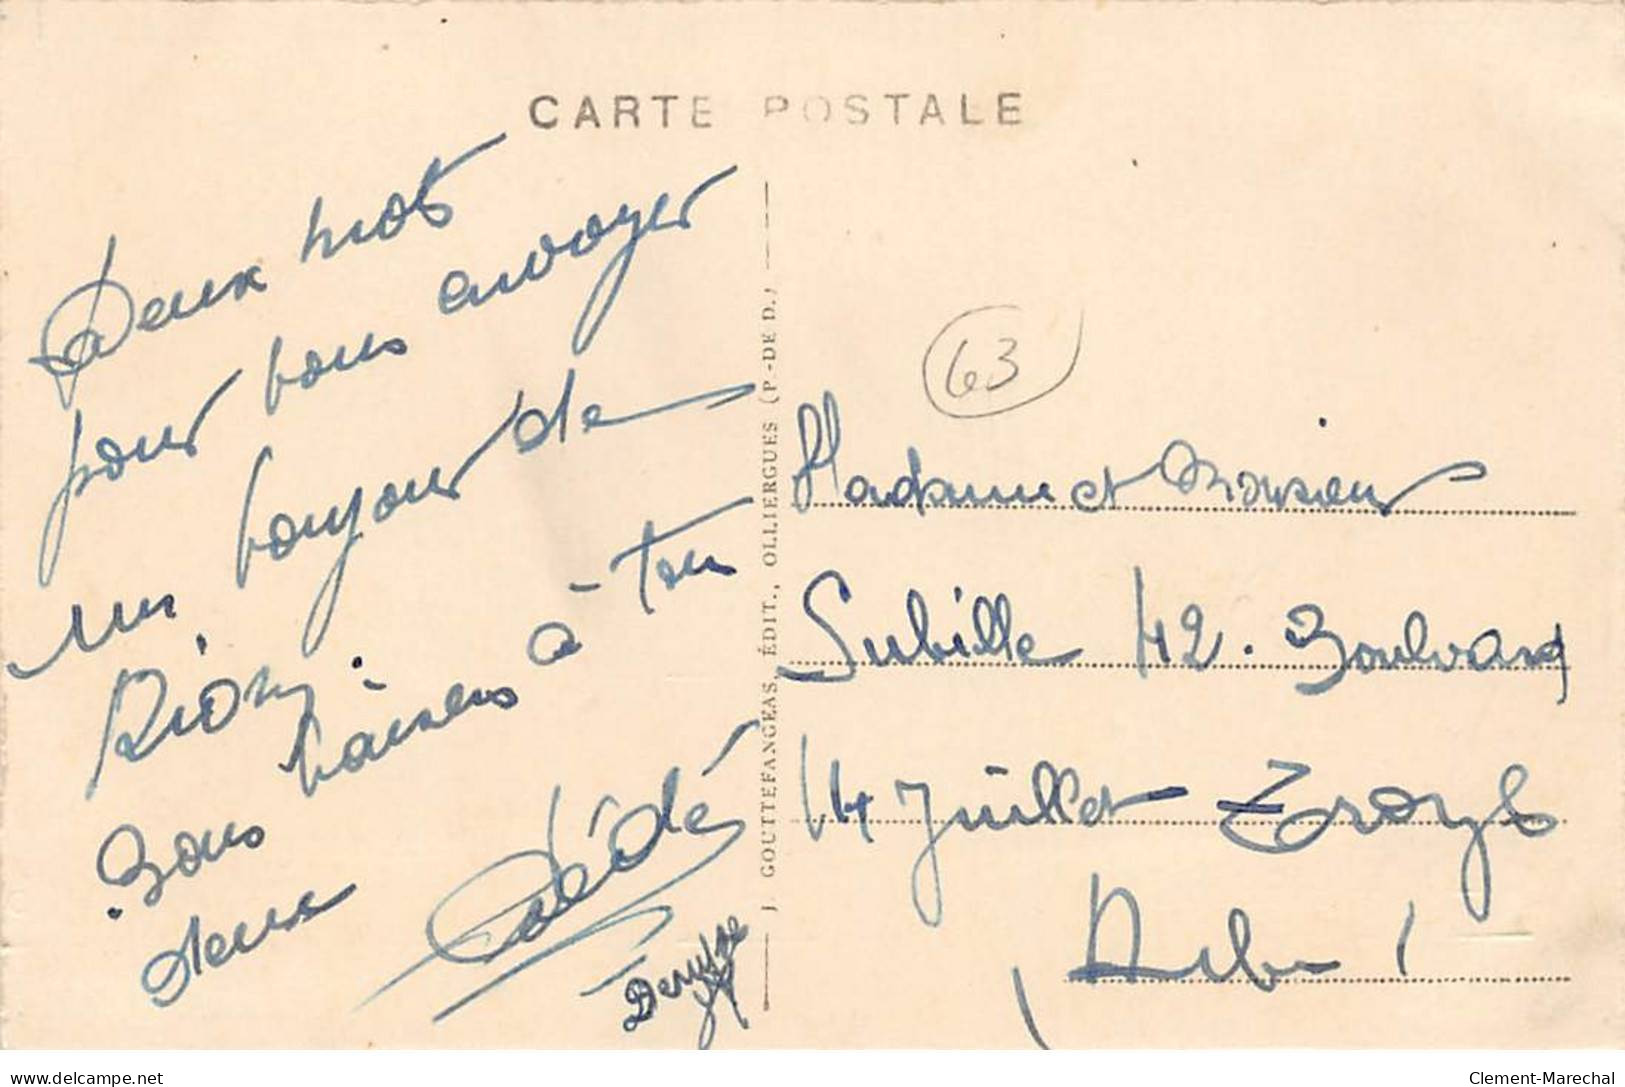 CARTE POSTALE
Deux mots
pour vous envoyer
un bonjour de
Riom.
Bons baisers à tous
deux
Dédé
Denise
J. GOUTTEFANGEAS, ÉDIT., OLLIERGUES (P.-DE D.)
63
Madame et Monsieur
Subille 42. Boulvard
14 Juillet Troyes
Aube
delcampe.net
Clement-Marechal